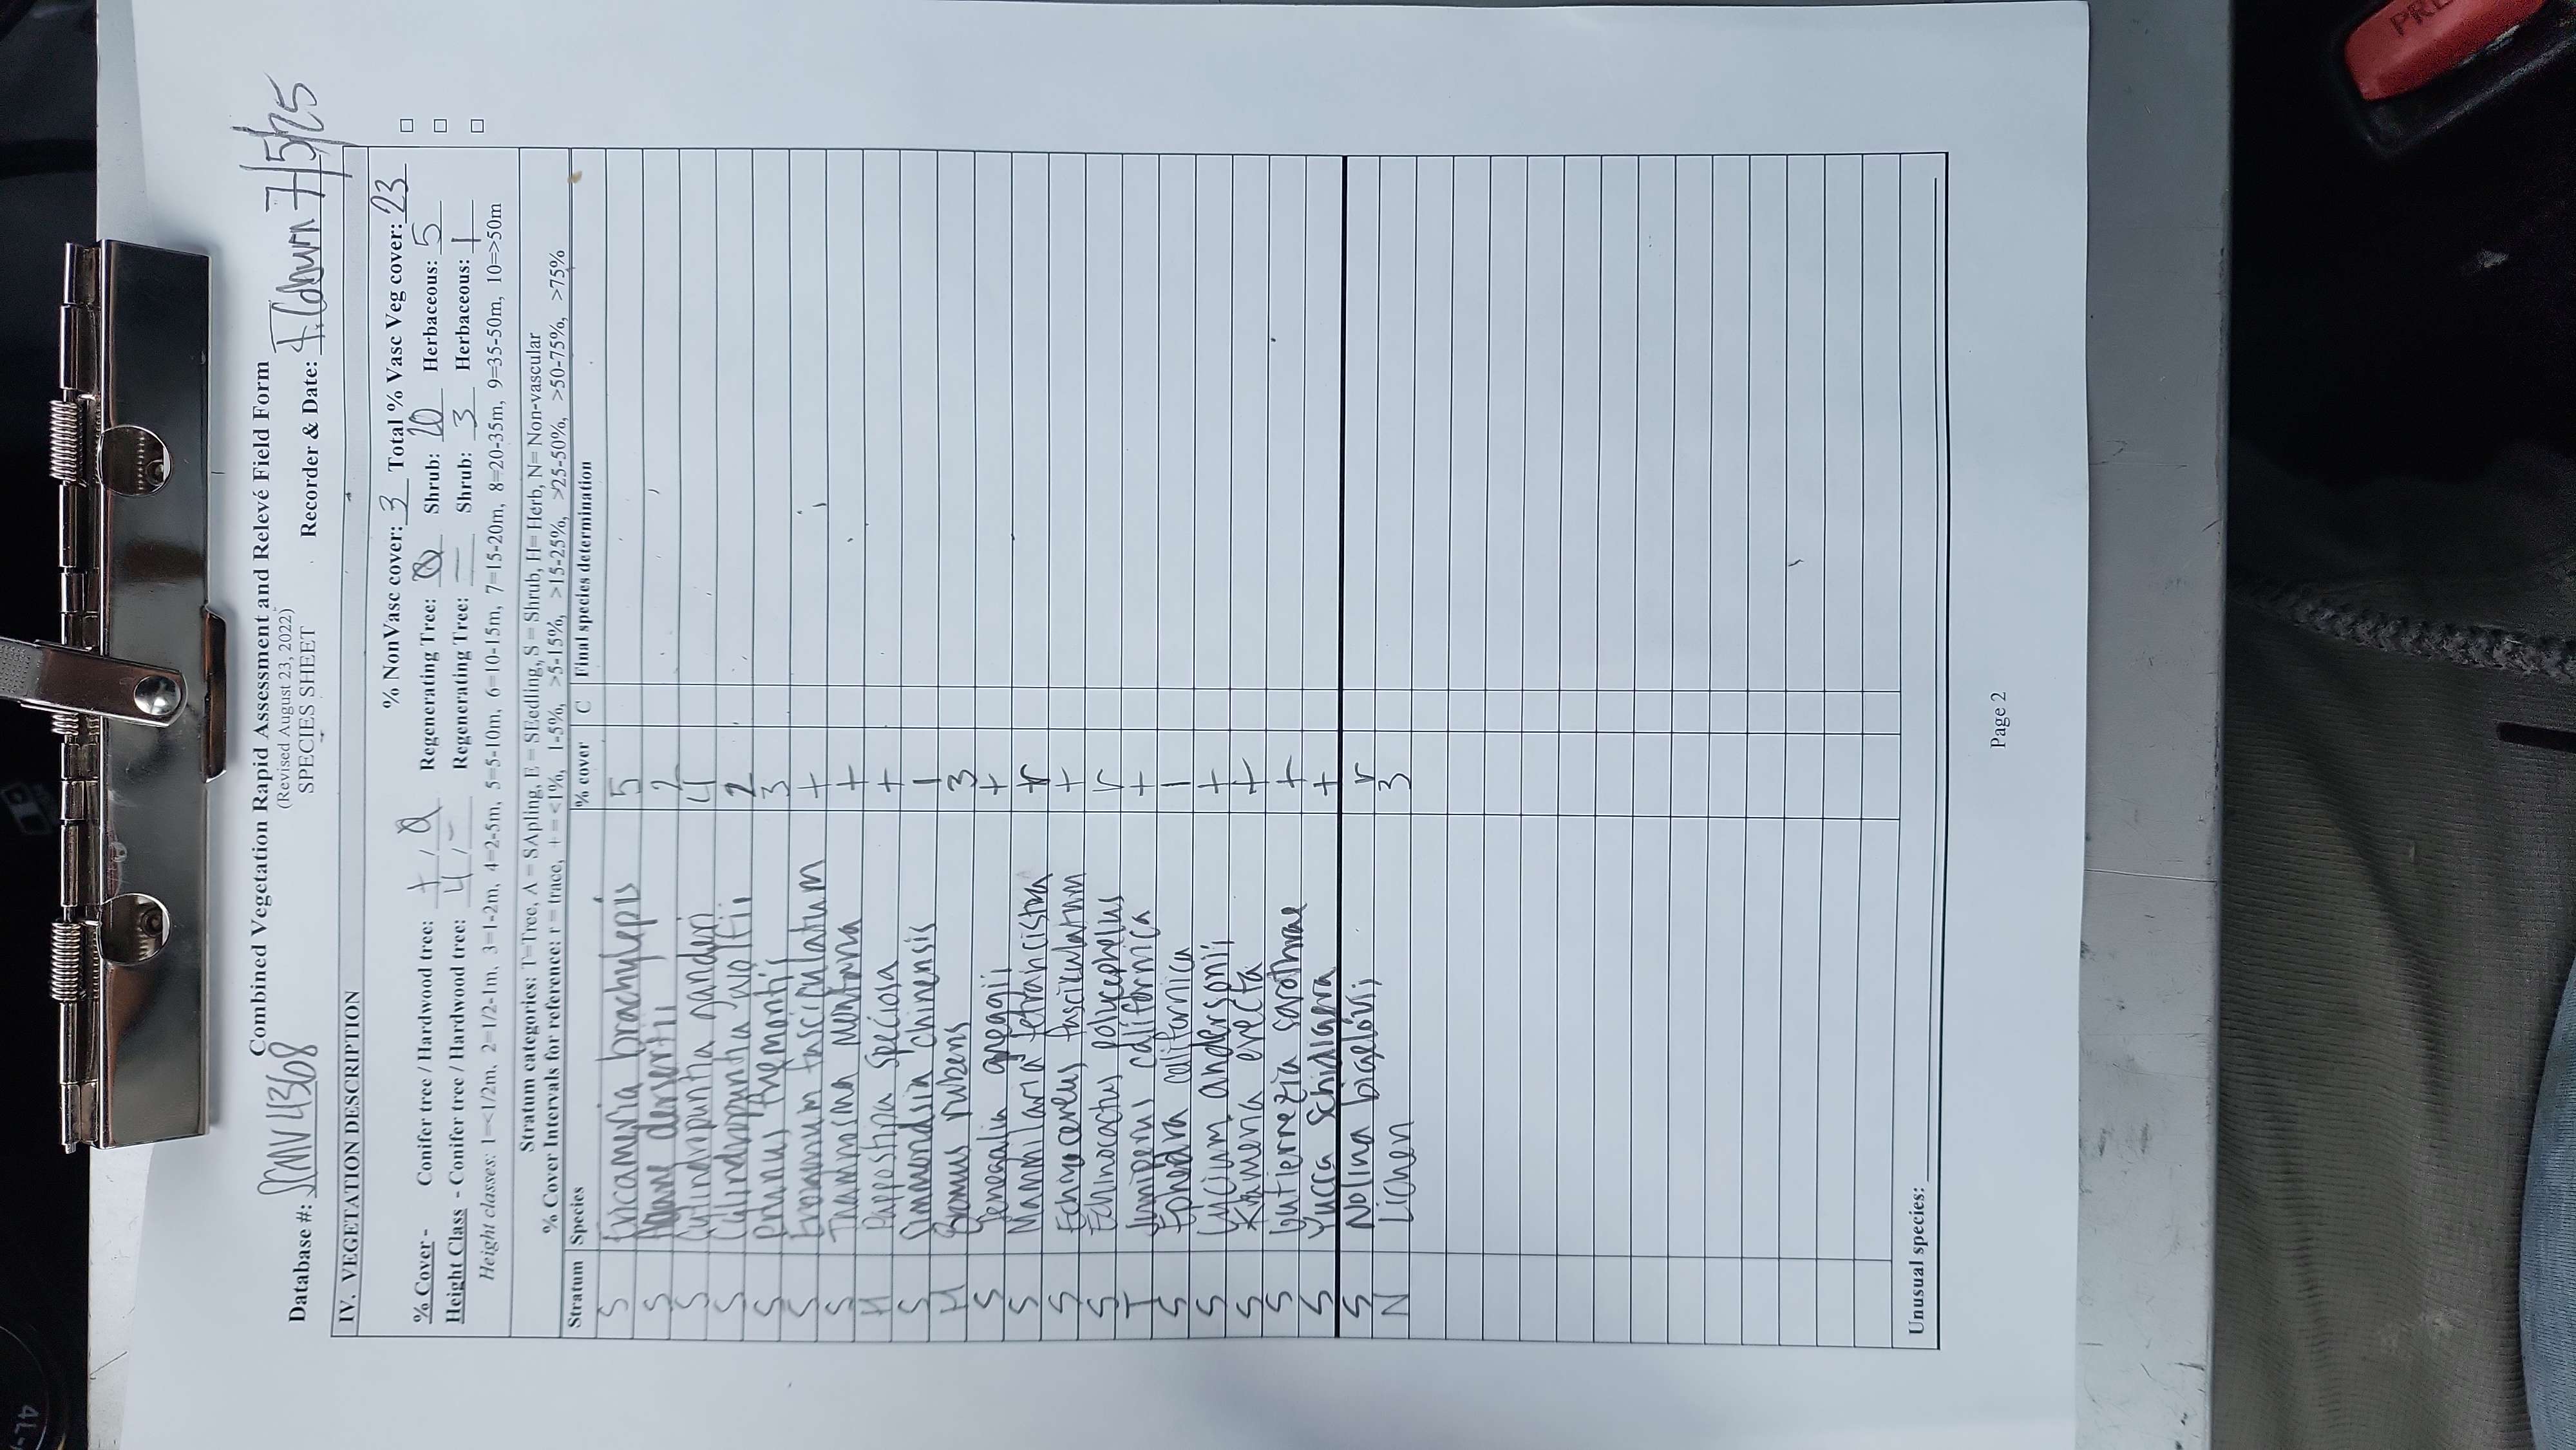 Combined Vegetation Rapid Assessment and Relevé Field Form
(Revised August 23, 2022)
Database #: SCNV4368 SPECIES SHEET Recorder & Date: 7/5/25
IV. VEGETATION DESCRIPTION
% NonVasc cover: 3 Total % Vasc Veg cover: 23
% Cover - Conifer tree / Hardwood tree: + / 0 Regenerating Tree: 0 Shrub: 20 Herbaceous: 5
Height Class - Conifer tree / Hardwood tree: 4 / - Regenerating Tree: — Shrub: 3 Herbaceous: 1
Height classes: 1=<1/2m, 2=1/2-1m, 3=1-2m, 4=2-5m, 5=5-10m, 6=10-15m, 7=15-20m, 8=20-35m, 9=35-50m, 10=>50m
Stratum categories: T=Tree, A = SApling, E = SEedling, S = Shrub, H= Herb, N= Non-vascular
% Cover Intervals for reference: r = trace, + = <1%, 1-5%, >5-15%, >15-25%, >25-50%, >50-75%, >75%
Stratum Species % cover C Final species determination
S Ericameria brachylepis 5
S Agave desertii 2
S Cylindropuntia ganderi 4
S Cylindropuntia wolfii 2
S Prunus fremontii 3
S Eriogonum fasciculatum +
S Trichostema montana +
H Pappostipa speciosa +
S Simmondsia chinensis 1
H Bromus rubens 3
S Senegalia greggii +
S Mammilaria tetrancistra r
S Echinocereus fasciculatum +
S Echinocactus polycephelus r
T Juniperus californica +
S Ephedra californica 1
S Lycium andersonii +
S Krameria erecta +
S Gutierrezia sarothrae +
S Yucca Schidigera +
S Nolina bigelovii r
N Lichen 3
Unusual species:
Page 2